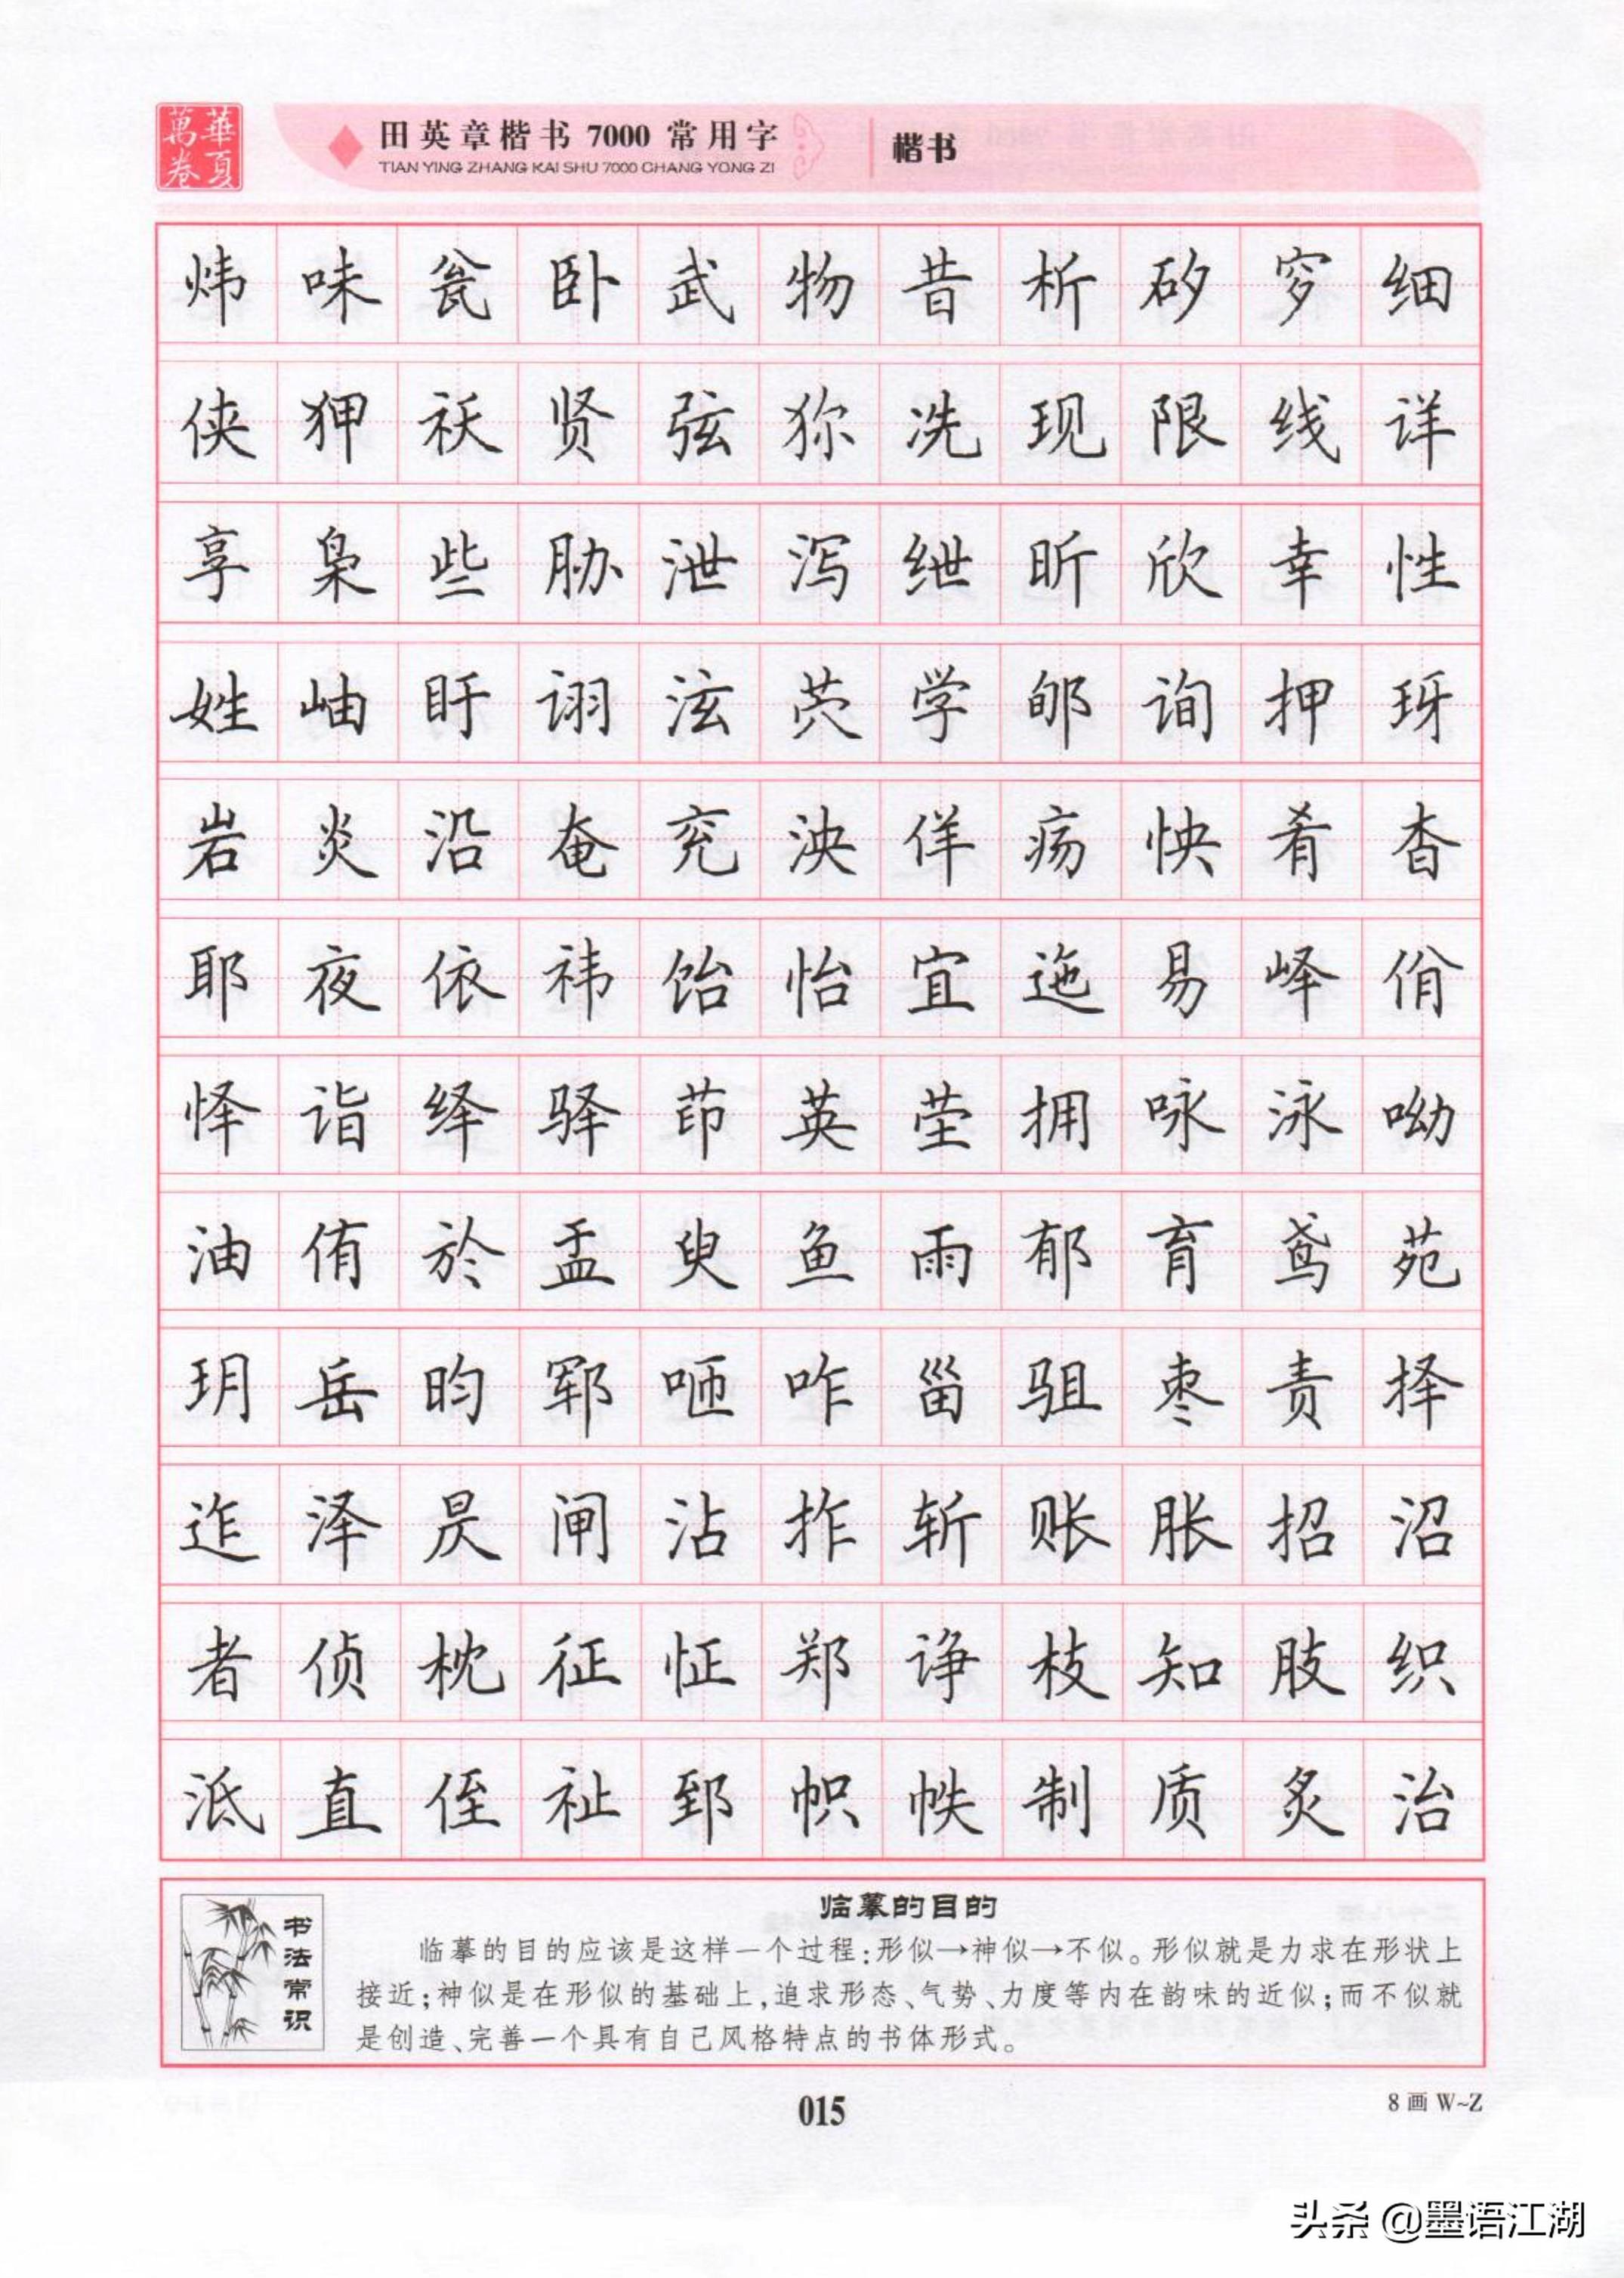 華夏萬卷
田英章楷书 7000 常用字
TIAN YING ZHANG KAI SHU 7000 CHANG YONG ZI
楷书
炜 味 瓮 卧 武 物 昔 析 矽 穸 细
侠 狎 祆 贤 弦 狝 冼 现 限 线 详
享 枭 些 胁 泄 泻 绁 昕 欣 幸 性
姓 岫 盱 诩 泫 荧 学 郇 询 押 玡
岩 炎 沿 奄 兖 泱 佯 疡 怏 肴 杳
耶 夜 依 祎 饴 怡 宜 迤 易 峄 佾
怿 诣 绎 驿 茚 英 茔 拥 咏 泳 呦
油 侑 於 盂 臾 鱼 雨 郁 育 鸢 苑
玥 岳 昀 郓 咂 咋 甾 驵 枣 责 择
迮 泽 昃 闸 沾 拃 斩 账 胀 招 沼
者 侦 枕 征 怔 郑 诤 枝 知 肢 织
泜 直 侄 祉 郅 帜 帙 制 质 炙 治
书法常识
临摹的目的
临摹的目的应该是这样一个过程:形似→神似→不似。形似就是力求在形状上
接近;神似是在形似的基础上,追求形态、气势、力度等内在韵味的近似;而不似就
是创造、完善一个具有自己风格特点的书体形式。
015
8 画 W~Z
头条 @墨语江湖